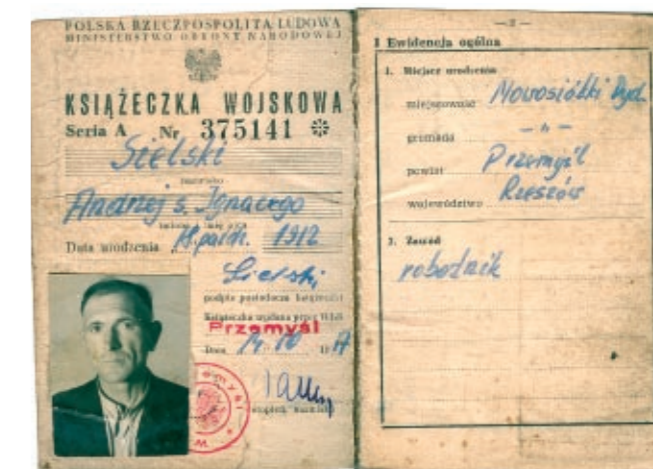 POLSKA RZECZPOSPOLITA LUDOWA
MINISTERSTWO OBRONY NARODOWEJ
KSIĄŻECZKA WOJSKOWA
Seria A Nr 375141
Sielski
nazwisko
Andrzej s. Ignacego
Data urodzenia 18 paźdz. 1912
Sielski
podpis posiadacza książeczki
Książeczka wydana przez WKR
Przemyśl
Dnia 14. 10 19
— 2 —
I Ewidencja ogólna
1. Miejsce urodzenia
miejscowość Nowosiółki Dyd.
gromada — „ —
powiat Przemyśl
województwo Rzeszów
2. Zawód
robotnik